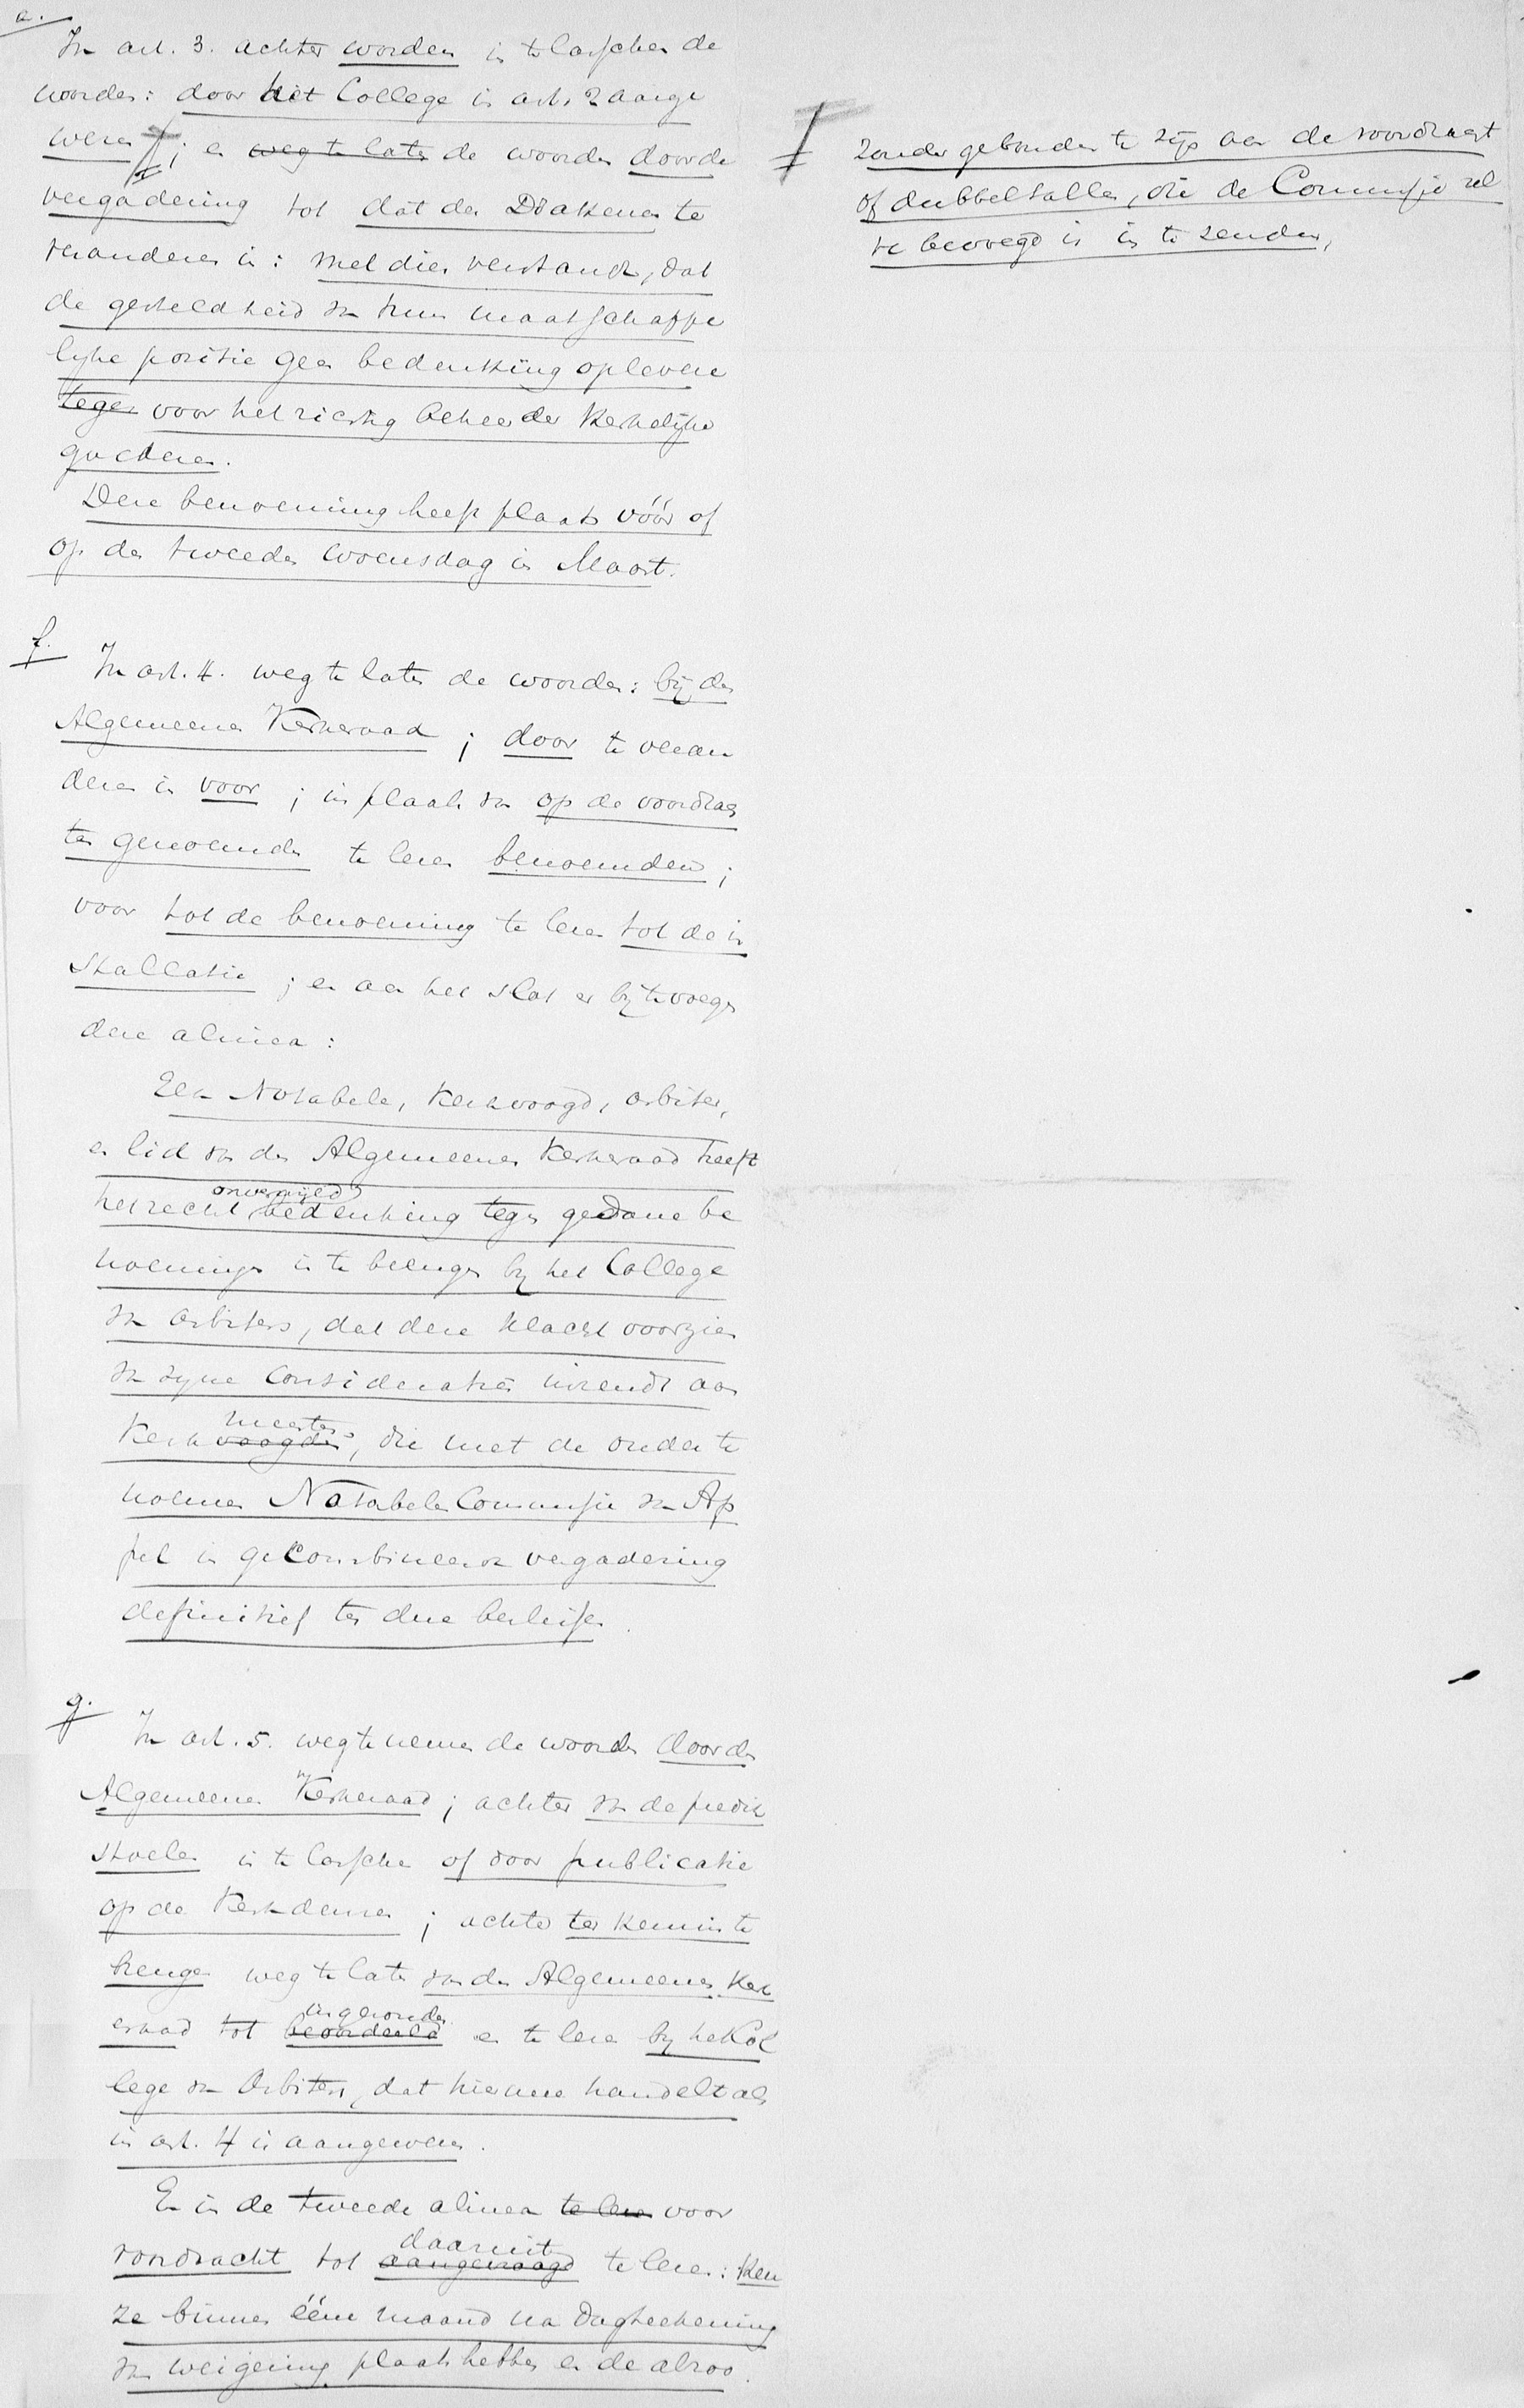 e.
In art. 3. achter worden in te lasschen de
woorden: door het College in art. 2 aange
wezen ; en weg te laten de woorden door de
vergadering tot dat der Diakenen te
veranderen in: met dien verstande, dat
de gesteldheid van hun maatschappe
lijke positie geen bedenking oplevere
tegen voor het richtig beheer der Kerkelijke
goederen.
Deze benoeming heeft plaats vóór of
op den tweeden woensdag in Maart.
zonder gebonden te zijn aan de voordragt
of dubbeltallen, die de Commissie zel
ve bevoegd is in te zenden,
f.
In art. 4. weg te laten de woorden: bij den
Algemeenen Kerkeraad ; door te veran
deren in voor ; in plaats van op de voordrag
ten genoemden te lezen benoemden ;
voor tot de benoeming te lezen tot de in
stallatie ; en aan het slot er bij te voegen
deze alinea :
Een Notabele, Kerkvoogd, arbiter,
en lid van den Algemeenen Kerkeraad heeft
onverwijld
het recht bedenking tegen gedane be
noemingen in te brengen bij het College
van Arbiters, dat deze klacht voorzien
van zijne consideratiën inzendt aan
meesters
Kerkvoogden, die met de onder te
noemen Notabelen Commissie van Ap
pel in gecombineerde vergadering
definitief ten deze beslissen.
g.
In art. 5. weg te nemen de woorden door den
Algemeenen Kerkeraad ; achter van de predik
stoelen in te lasschen of door publicatie
op de Kerkdeuren ; achter ter kennis te
brengen weg te laten van den Algemeenen Kerk
eraad tot beoordeeld en te lezen bij het Col
ingezonden
lege van Arbiters, dat hiermee handelt als
in art. 4 is aangewezen.
En in de tweede alinea te lezen voor
daaruit
rondracht tot aangevraagd te lezen: Keu
ze binnen ééne maand na dagteekening
van weigering plaats hebben en de alzoo